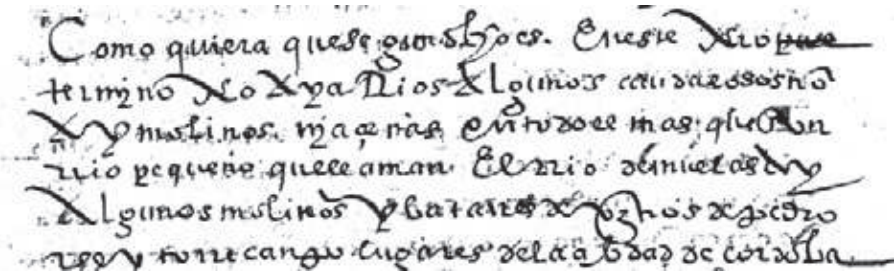 Como quiera que En este
termino No Aya Rios Algunos caudalosos no
Ay molinos ni açeñas en todo el mas que Un
rrio pequeño que El rrio Ay
Algunos molinos y batanes de vzinos de pedro
y torrecanpo lugares de la çibdad de cordoba